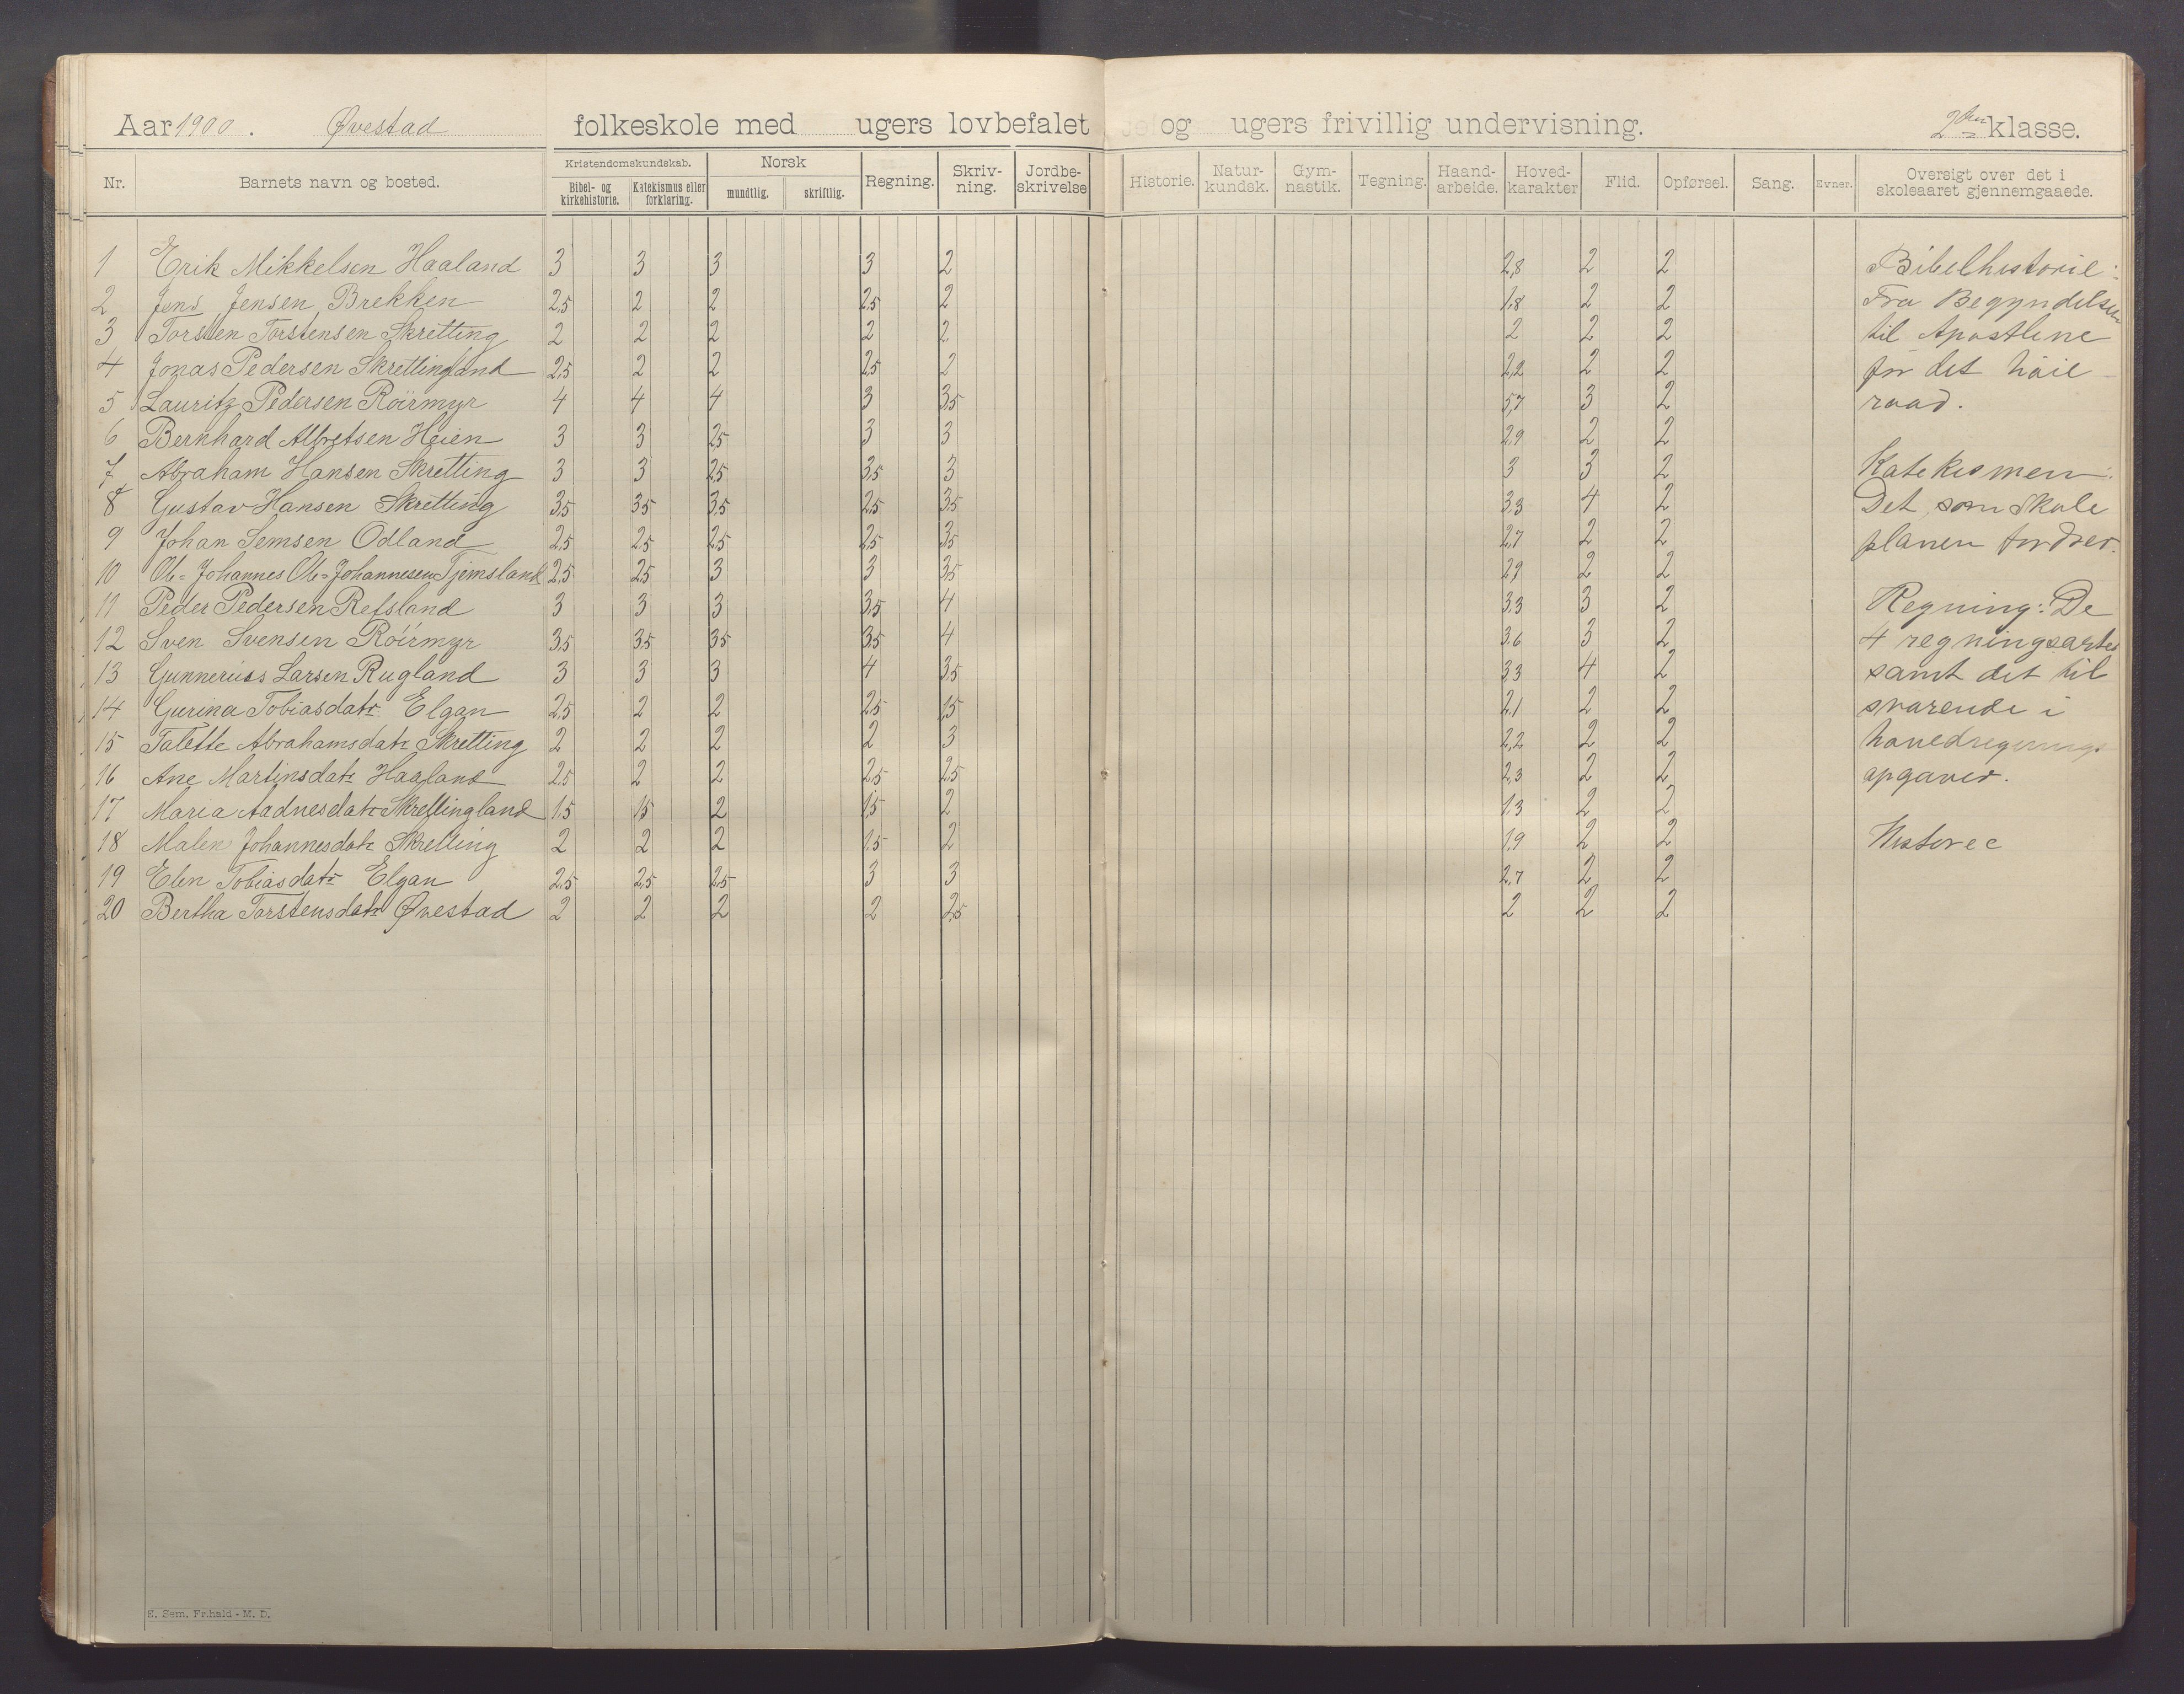 Aar 1900. Øvestad folkeskole med ugers lovbefalet og ugers frivillig undervisning. 2den klasse.
Nr. Barnets navn og bosted. Kristendomskundskab. Bibel- og kirkehistorie. Katekismus eller forklaring. Norsk mundtlig. skriftlig. Regning. Skriv-ning. Jordbe-skrivelse Historie. Natur-kundsk. Gym-nastik. Tegning. Haand-arbeide. Hoved-karakter Flid. Opførsel. Sang. Evner. Oversigt over det i skoleaaret gjennemgaaede.
1 Erik Mikkelsen Haaland 3 3 3 3 2 2,8 2 2
2 Jens Jensen Brekken 2,5 2 2 2,5 2 1,8 2 2
3 Torsten Torstensen Skretting 2 2 2 2 2 2 2 2
4 Jonas Pedersen Skrettingland 2,5 2 2 2,5 2 2,2 2 2
5 Lauritz Pedersen Röirmyr 4 4 4 3 3,5 5,7 3 2
6 Bernhard Albretsen Heien 3 3 2,5 3 3 2,9 2 2
7 Abraham Hansen Skretting 3 3 2,5 3,5 3 3 3 2
8 Gustav Hansen Skretting 3,5 3,5 3,5 2,5 3,5 3,3 4 2
9 Johan Semsen Odland 2,5 2,5 2,5 2,5 3,5 2,7 2 2
10 Ole-Johannes Ole-Johannesen Tjemsland 2,5 2,5 3 3 3,5 2,9 2 2
11 Peder Pedersen Refsland 3 3 3 3,5 4 3,3 3 2
12 Sven Svensen Röirmyr 3,5 3,5 3,5 3,5 4 3,6 3 2
13 Gunnerius Larsen Rugland 3 3 3 4 3,5 3,3 4 2
14 Gurina Tobiasdatr. Elgan 2,5 2 2 2,5 1,5 2,1 2 2
15 Talette Abrahamsdatr Skretting 2 2 2 2 3 2,2 2 2
16 Ane Martinsdatr Haaland 2,5 2 2 2,5 2,5 2,3 2 2
17 Maria Aadnesdatr Skrettingland 1,5 1,5 2 1,5 2 1,3 2 2
18 Malen Johannesdatr Skretting 2 2 2 1,5 2 1,9 2 2
19 Elen Tobiasdatr Elgan 2,5 2,5 2,5 3 3 2,7 2 2
20 Bertha Torstensdatr Øvestad 2 2 2 2 2,5 2 2 2
Bibelhistorie:
Fra Begyndelsen
til Apostlene
for det høie
raad.
Katekismen:
Det, som skole
planen fordrer.
Regning: De
4 regningsarter
samt det til
svarende i
hovedregnings
opgaver.
Historie
E. Sem. Fr.hald - M. D.